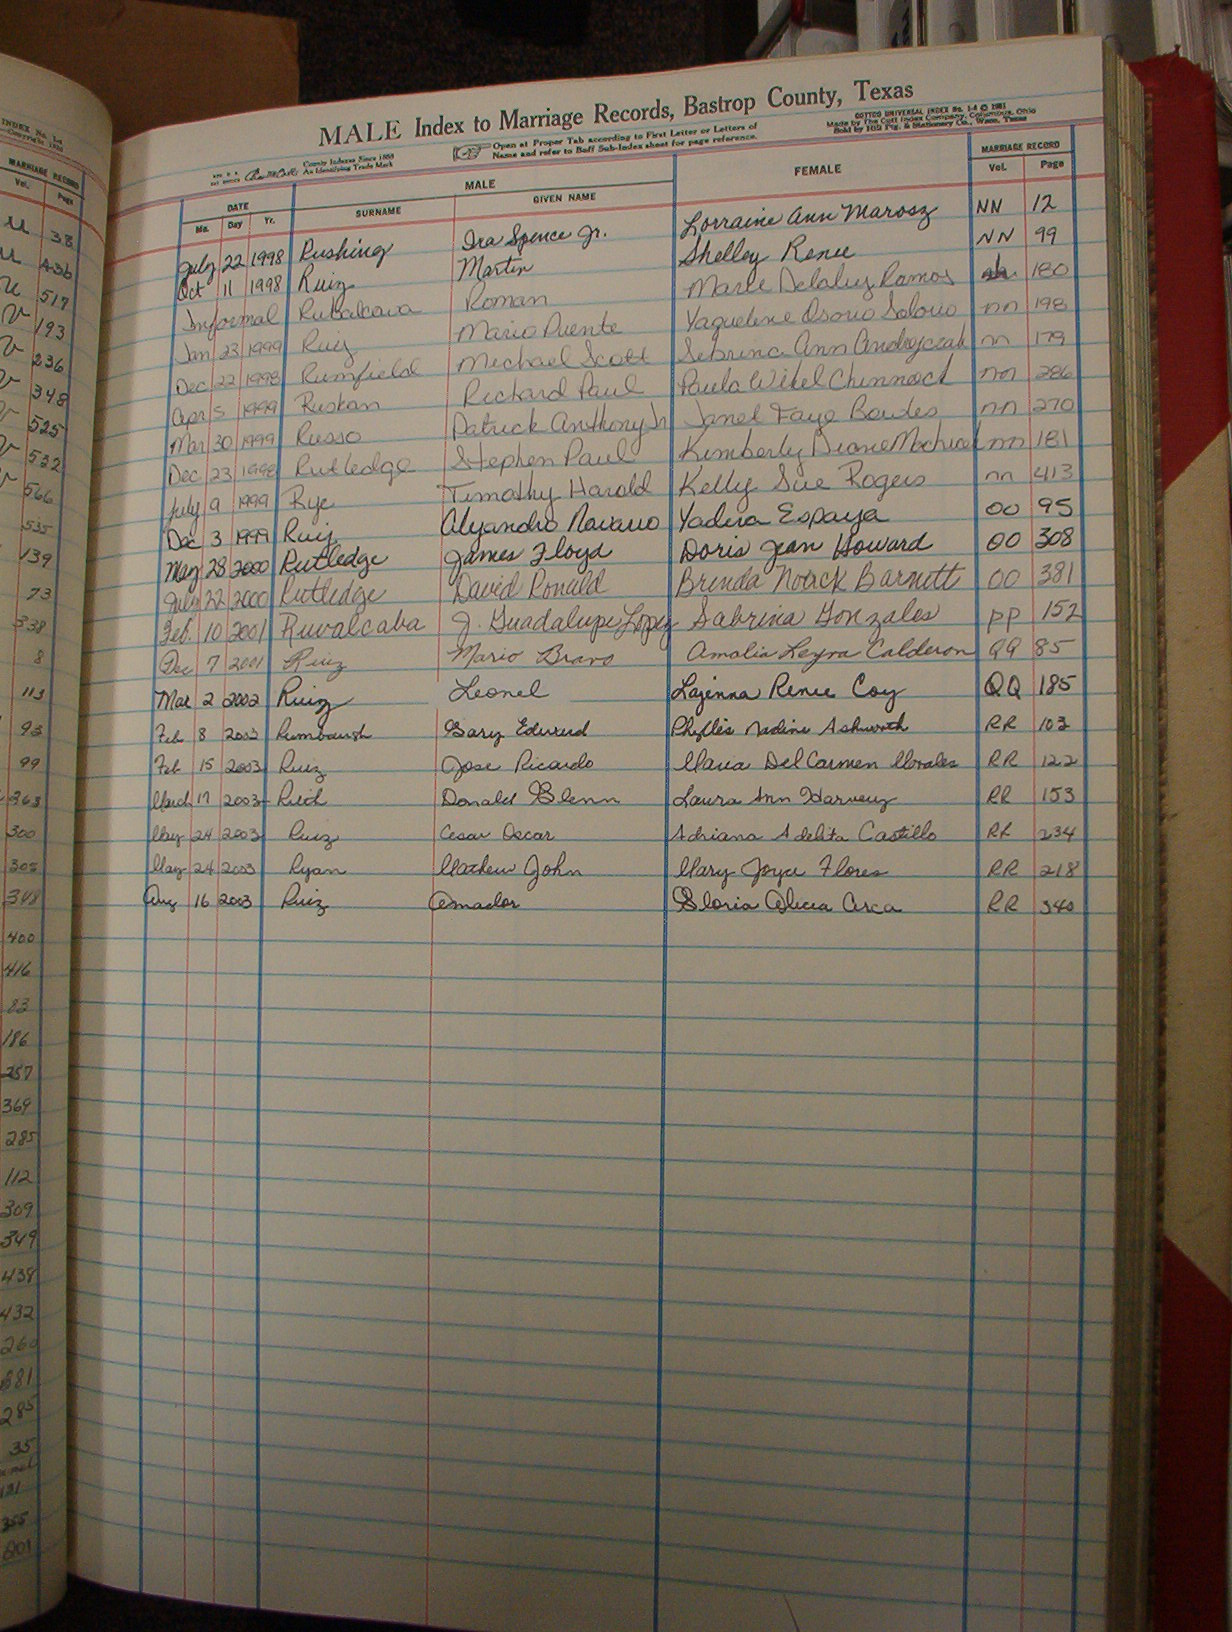 INDEX No. 1-4
Copyright 1930
MARRIAGE RECORD
Vol. Page
U 33
U 436
U 517
V 193
V 236
V 348
V 525
V 532
V 566
535
139
73
338
8
113
93
99
263
300
305
348
400
416
83
186
257
369
285
112
309
349
439
432
260
285
35
355
801
MALE Index to Marriage Records, Bastrop County, Texas
County Indexes Since 1888
An Identifying Trade Mark
Open at Proper Tab according to First Letter or Letters of
Name and refer to Buff Sub-Index sheet for page reference.
COTTCO UNIVERSAL INDEX No. 1-4 © 1981
Made by The Cott Index Company, Columbus, Ohio
DATE MALE FEMALE MARRIAGE RECORD
Mo. Day Yr. SURNAME GIVEN NAME Vol. Page
July 22 1998 Rushing Ira Spence Jr. Lorraine Ann Marosz NN 12
Oct 11 1998 Ruiz Martin Shelley Renee NN 99
Informal Rubalcava Roman Marie Delaluz Ramos 180
Jan 23 1999 Ruiz Mario Puente Yaquelene Osorio Solorio nn 198
Dec 22 1998 Rumfield Michael Scott Sebrina Ann Andrejczak nn 179
Apr 5 1999 Ruskan Richard Paul Paula Wikel Chinnock nn 286
Mar 30 1999 Russo Patrick Anthony Jr Janel Faye Boudes nn 270
Dec 23 1998 Rutledge Stephen Paul Kimberly Diane Machical nn 181
July 9 1999 Rye Timothy Harold Kelly Sue Rogers nn 413
Dec 3 1999 Ruiz Alejandro Navarro Yadira Espaya OO 95
May 28 2000 Rutledge James Floyd Doris Jean Howard OO 308
July 22 2000 Rutledge David Ronald Brenda Noack Barnett OO 381
Feb. 10 2001 Ruvalcaba J. Guadalupe Lopez Sabrina Gonzales PP 152
Dec 7 2001 Ruiz Mario Bravo Amalia Leyva Calderon QQ 85
Mar 2 2002 Ruiz Leonel Lajenna Renee Coy QQ 185
Feb 8 2003 Rumbaugh Gary Edward Phyllis Nadine Ashworth RR 103
Feb 15 2003 Ruiz Jose Ricardo Maria Del Carmen Morales RR 122
March 17 2003 Ruch Donald Glenn Laura Ann Harvey RR 153
May 24 2003 Ruiz Cesar Oscar Adriana Adelita Castillo RR 234
May 24 2003 Ryan Mathew John Mary Joyce Flores RR 218
Aug 16 2003 Ruiz Amador Gloria Alicia Arca RR 340